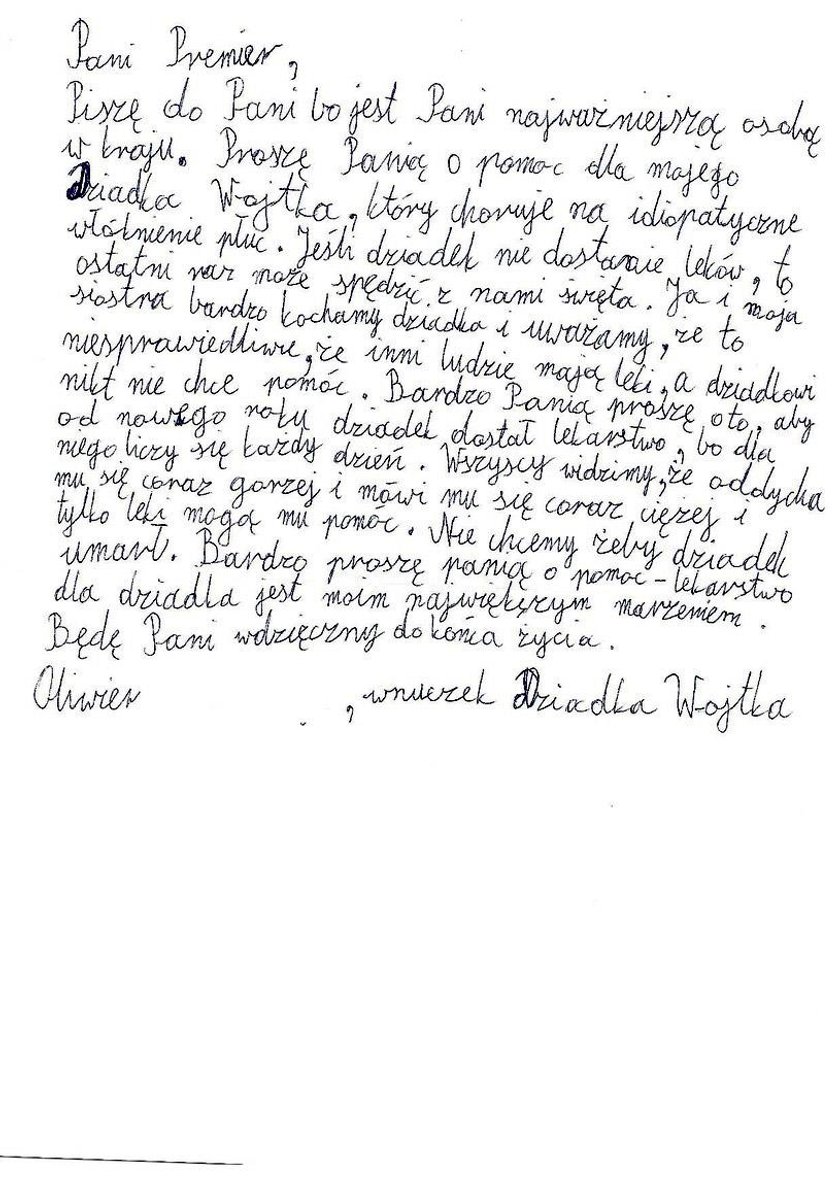 Pani Premier,
Piszę do Pani bo jest Pani najważniejszą osobą
w kraju. Proszę Panią o pomoc dla mojego
Dziadka Wojtka, który choruje na idiopatyczne
włóknienie płuc. Jeśli dziadek nie dostanie leków, to
ostatni raz może spędzić z nami święta. Ja i moja
siostra bardzo kochamy dziadka i uważamy, że to
niesprawiedliwe, że inni ludzie mają leki, a dziadkowi
nikt nie chce pomóc. Bardzo Panią proszę oto, aby
od nowego roku dziadek dostał lekarstwo, bo dla
niego liczy się każdy dzień. Wszyscy widzimy, że oddycha
mu się coraz gorzej i mówi mu się coraz ciężej i
tylko leki mogą mu pomóc. Nie chcemy żeby dziadek
umarł. Bardzo proszę panią o pomoc - lekarstwo
dla dziadka jest moim największym marzeniem.
Będę Pani wdzięczny do końca życia.
Oliwier , wnuczek Dziadka Wojtka